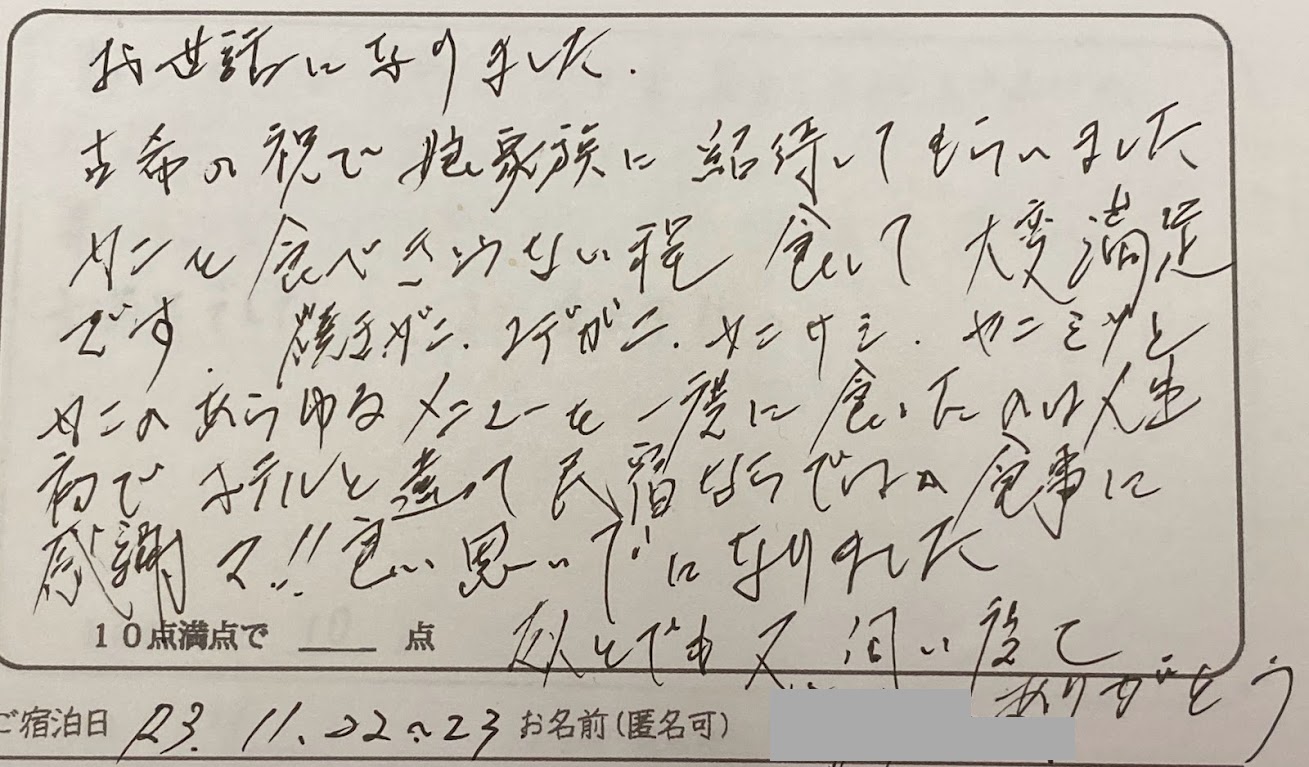 お世話になりました.
古希の祝で娘家族に紹待してもらいました
カニを食べきらない程 食して 大変満足
です. 焼きガニ. ユデガニ. カニサシ. カニミソと
カニのあらゆるメニューを一度に食したのは人生
初で ホテルと違って 民宿ならではの食事に
感謝々!! 良い思いでになりました
10点満点で 10 点 又 伺い度て
ありがとう
ご宿泊日 R3. 11. 22~23 お名前(匿名可)